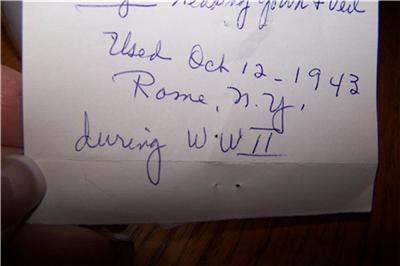 gown + veil
Used Oct 12-1943
Rome, N.Y.
during W.W II